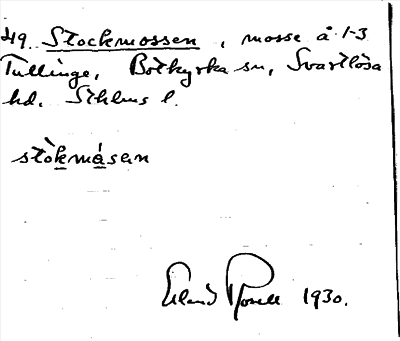 49. Stockmossen, mosse å 1-3
Tullinge, Botkyrka sn, Svartlösa
hd. Sthlms l.
stòkmåsen
Erland Rosell 1930.